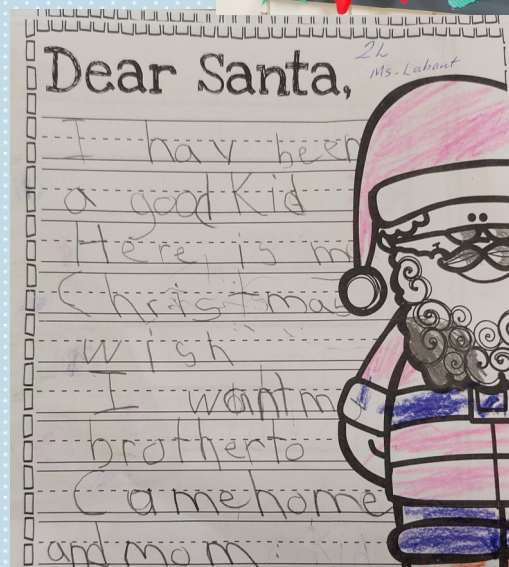 Dear Santa,
2L
Ms. Labant
I hav been
a good Kid
Here is m
Christmas
wish
I want m
brother to
Came home
and mom